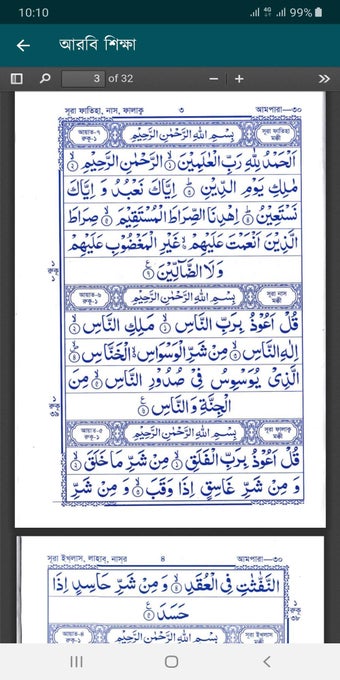 10:10
4G
99%
আরবি শিক্ষা
3 of 32
সূরা ফাতিহা, নাস, ফালাক্ব ৩ আমপারা—৩০
بِسْمِ اللهِ الرَّحْمٰنِ الرَّحِيْمِ
সূরা ফাতিহা
মক্কী
اَلْحَمْدُ لِلّٰهِ رَبِّ الْعٰلَمِيْنَ ۝١ الرَّحْمٰنِ الرَّحِيْمِ ۝٢
مٰلِكِ يَوْمِ الدِّيْنِ ۝ اِيَّاكَ نَعْبُدُ وَ اِيَّاكَ
نَسْتَعِيْنُ ۝ اِهْدِنَا الصِّرَاطَ الْمُسْتَقِيْمَ ۝ صِرَاطَ
الَّذِيْنَ اَنْعَمْتَ عَلَيْهِمْ غَيْرِ الْمَغْضُوْبِ عَلَيْهِمْ
وَلَا الضَّآلِّيْنَ
بِسْمِ اللهِ الرَّحْمٰنِ الرَّحِيْمِ
সূরা নাস
মক্কী
قُلْ اَعُوْذُ بِرَبِّ النَّاسِ ۝ مَلِكِ النَّاسِ ۝
اِلٰهِ النَّاسِ ۝ مِنْ شَرِّ الْوَسْوَاسِ الْخَنَّاسِ ۝
الَّذِىْ يُوَسْوِسُ فِىْ صُدُوْرِ النَّاسِ ۝ مِنَ
الْجِنَّةِ وَ النَّاسِ
بِسْمِ اللهِ الرَّحْمٰنِ الرَّحِيْمِ
সূরা ফালাক্ব
মক্কী
قُلْ اَعُوْذُ بِرَبِّ الْفَلَقِ ۝ مِنْ شَرِّ مَا خَلَقَ ۝
وَ مِنْ شَرِّ غَاسِقٍ اِذَا وَقَبَ ۝ وَ مِنْ شَرِّ
সূরা ইখলাস, লাহাব, নাসর ৪ আমপারা—৩০
النَّفّٰثٰتِ فِى الْعُقَدِ ۝ وَ مِنْ شَرِّ حَاسِدٍ اِذَا
حَسَدَ
بِسْمِ اللهِ الرَّحْمٰنِ الرَّحِيْمِ
সূরা ইখলাস